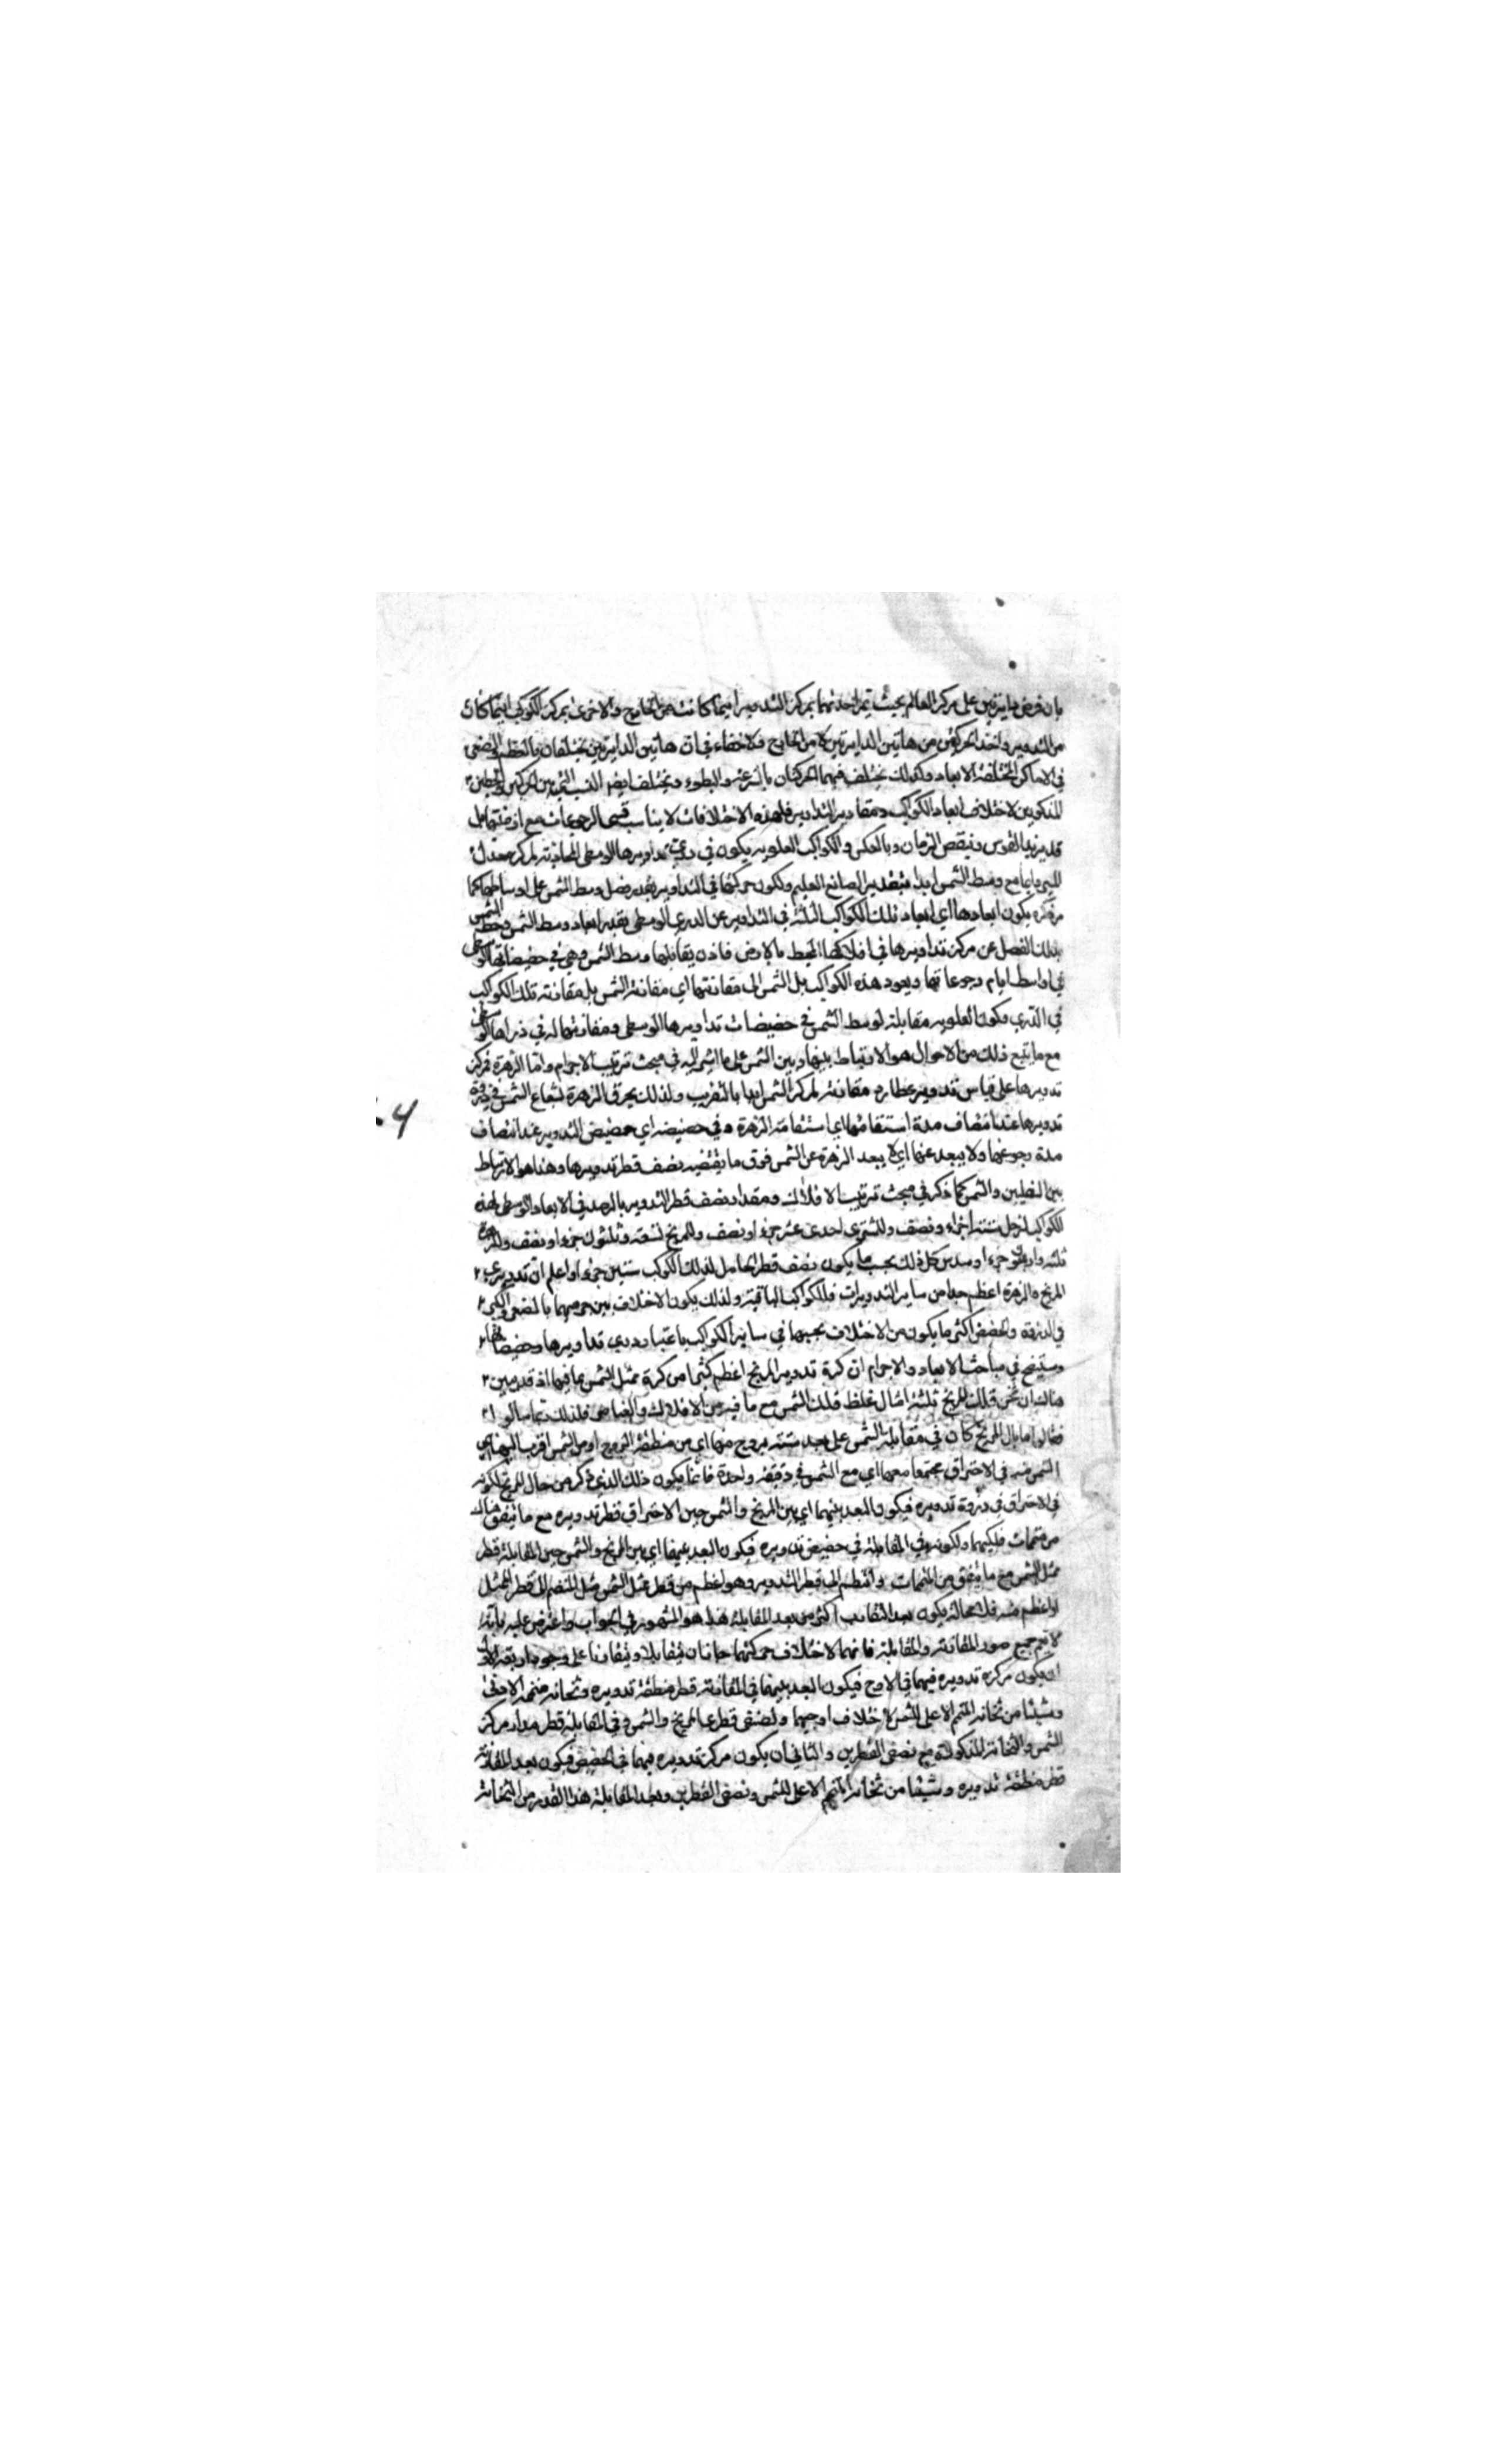 بان نفرض دايرتين على مركز العالم بحيث تمر احديهما بمركز التدوير اينما كانت من الخارج والاخرى بمركز الكوكب اينما كان
من التدوير واخذ الحركتين من هاتين الدايرتين لا من الخارج ولا خفاء في ان هاتين الدايرتين يختلفان بالعظم والصغر
في الاماكن المختلفة الابعاد وكذلك يختلف فيهما الحركتان بالسرعة والبطوء ويختلف ايضا النسب التي بين الحركتين
المذكورين لاختلاف ابعاد الكواكب ومقادير التداوير فلهذه الاختلافات لا يناسب قسي الرجوعات مع ازمنتها بل
قد يزيد القوس وينقص الزمان وبالعكس والكواكب العلوية يكون في ذرى تداويرها الوسطى المحاذية لمركز معدل
المسير دايما مع وسط الشمس ابدا بتقدير الصانع العليم ولكون حركتها في التداوير بقدر فضل وسط الشمس على اوساطها كما
مر ذكره يكون ابعادها اي ابعاد تلك الكواكب الثلثة في التداوير عن الذرى الوسطى بقدر ابعاد وسط الشمس
بذلك الفضل عن مركز تداويرها في افلاكها المحيط بالارض فاذن يقابلها وسط الشمس وهي في حضيضاتها الوسطى
في اواسط ايام رجوعاتها ويعود هذه الكواكب بل الشمس الى مقارنتها اي مقارنة الشمس بل مقارنة تلك الكواكب
في الذرى وكون العلوية مقابلة لوسط الشمس في حضيضات تداويرها الوسطى ومقارنتها له في ذراها الوسطى
مع ما يتبع ذلك من الاحوال هو الارتباط بينها وبين الشمس على ما اشير اليه في مبحث ترتيب الاجرام واما الزهرة فمركز
تدويرها على قياس تدوير عطارد مقارنة لمركز الشمس ابدا بالتقريب ولذلك يحترق الزهرة لشعاع الشمس في ذروة
تدويرها عند انتصاف مدة استقامتها اي استقامة الزهرة وفي حضيضه اي حضيض التدوير عند انتصاف
مدة رجوعها ولا يبعد عنها اي لا يبعد الزهرة عن الشمس فوق ما يقتضيه نصف قطر تدويرها وهذا هو الارتباط
بين السفليين والشمس كما ذكر في مبحث ترتيب الافلاك ومقدار نصف قطر التدوير بالرصد في الابعاد الوسطى لهذه
الكواكب لزحل ستة اجزاء ونصف وللمشتري احدى عشر جزءا ونصف وللمريخ تسعة وثلثون جزءا ونصف وللزهرة
ثلثة واربعون جزءا وسدس كل ذلك بحسب ما يكون نصف قطر الحامل لذلك الكوكب ستين جزءا واعلم ان تدويري
المريخ والزهرة اعظم جدا من ساير التدويرات للكواكب الباقية ولذلك يكون الاختلاف بين جرميهما بالصغر والكبر
في الذروة والحضيض اكثر ما يكون من الاختلاف بحسبها في ساير الكواكب باعتبار ذرى تداويرها وحضيضاتها
وستيضح في مباحث الابعاد والاجرام ان كرة تدوير المريخ اعظم كثيرا من كرة ممثل الشمس بما فيها اذ قد يبين
هنالك ان ثخن فلك المريخ ثلثة امثال غلظ فلك الشمس مع ما فيه من الافلاك والعناصر فلذلك لما سالوا
فقالوا ما بال المريخ كان في مقابلة الشمس على بعد ستة بروج منها اي من منطقة البروج او من الشمس اقرب اليها اي
الشمس منه في الاحتراق مجتمعا معها اي مع الشمس في دقيقة واحدة فانما يكون ذلك الذي ذكر من حال المريخ لكونه
في الاحتراق في ذروة تدويره فيكون البعد بينهما اي بين المريخ والشمس حين الاحتراق قطر تدويره مع ما يتفق هناك
من متممات فلكيهما ولكونه في المقابلة في حضيض تدويره فيكون البعد بينهما اي بين المريخ والشمس حين المقابلة قطر
ممثل الشمس مع ما يتفق من المتممات والمنضم الى قطر التدوير وهو اعظم من قطر ممثل الشمس مثل المنضم الى قطر الممثل
او اعظم منه فلا محالة يكون بعد التقارب اكثر من بعد المقابلة هذا هو المشهور في الجواب واعترض عليه بانه
لا يعم جميع صور المقارنة والمقابلة فانهما لاختلاف حركتهما جاز ان يتقابلا ويتقارنا على وجوه اربعة الاول
ان يكون مركز تدويره فيهما في الاوج فيكون البعد بينهما في المقارنة قطر منطقة تدويره وثخانة متممه الادنى
وشيئا من ثخانة المتمم الاعلى للشمس لاختلاف اوجيهما ونصفي قطري المريخ والشمس وفي المقابلة قطر مدار مركز
الشمس والثخانة المذكورة مع نصفي القطرين والثاني ان يكون مركز تدويره فيهما في الحضيض فيكون بعد المقارنة
قطر منطقة تدويره وشيئا من ثخانة المتمم الاعلى للشمس ونصفي القطرين وبعد المقابلة هذا القدر من الثخانة